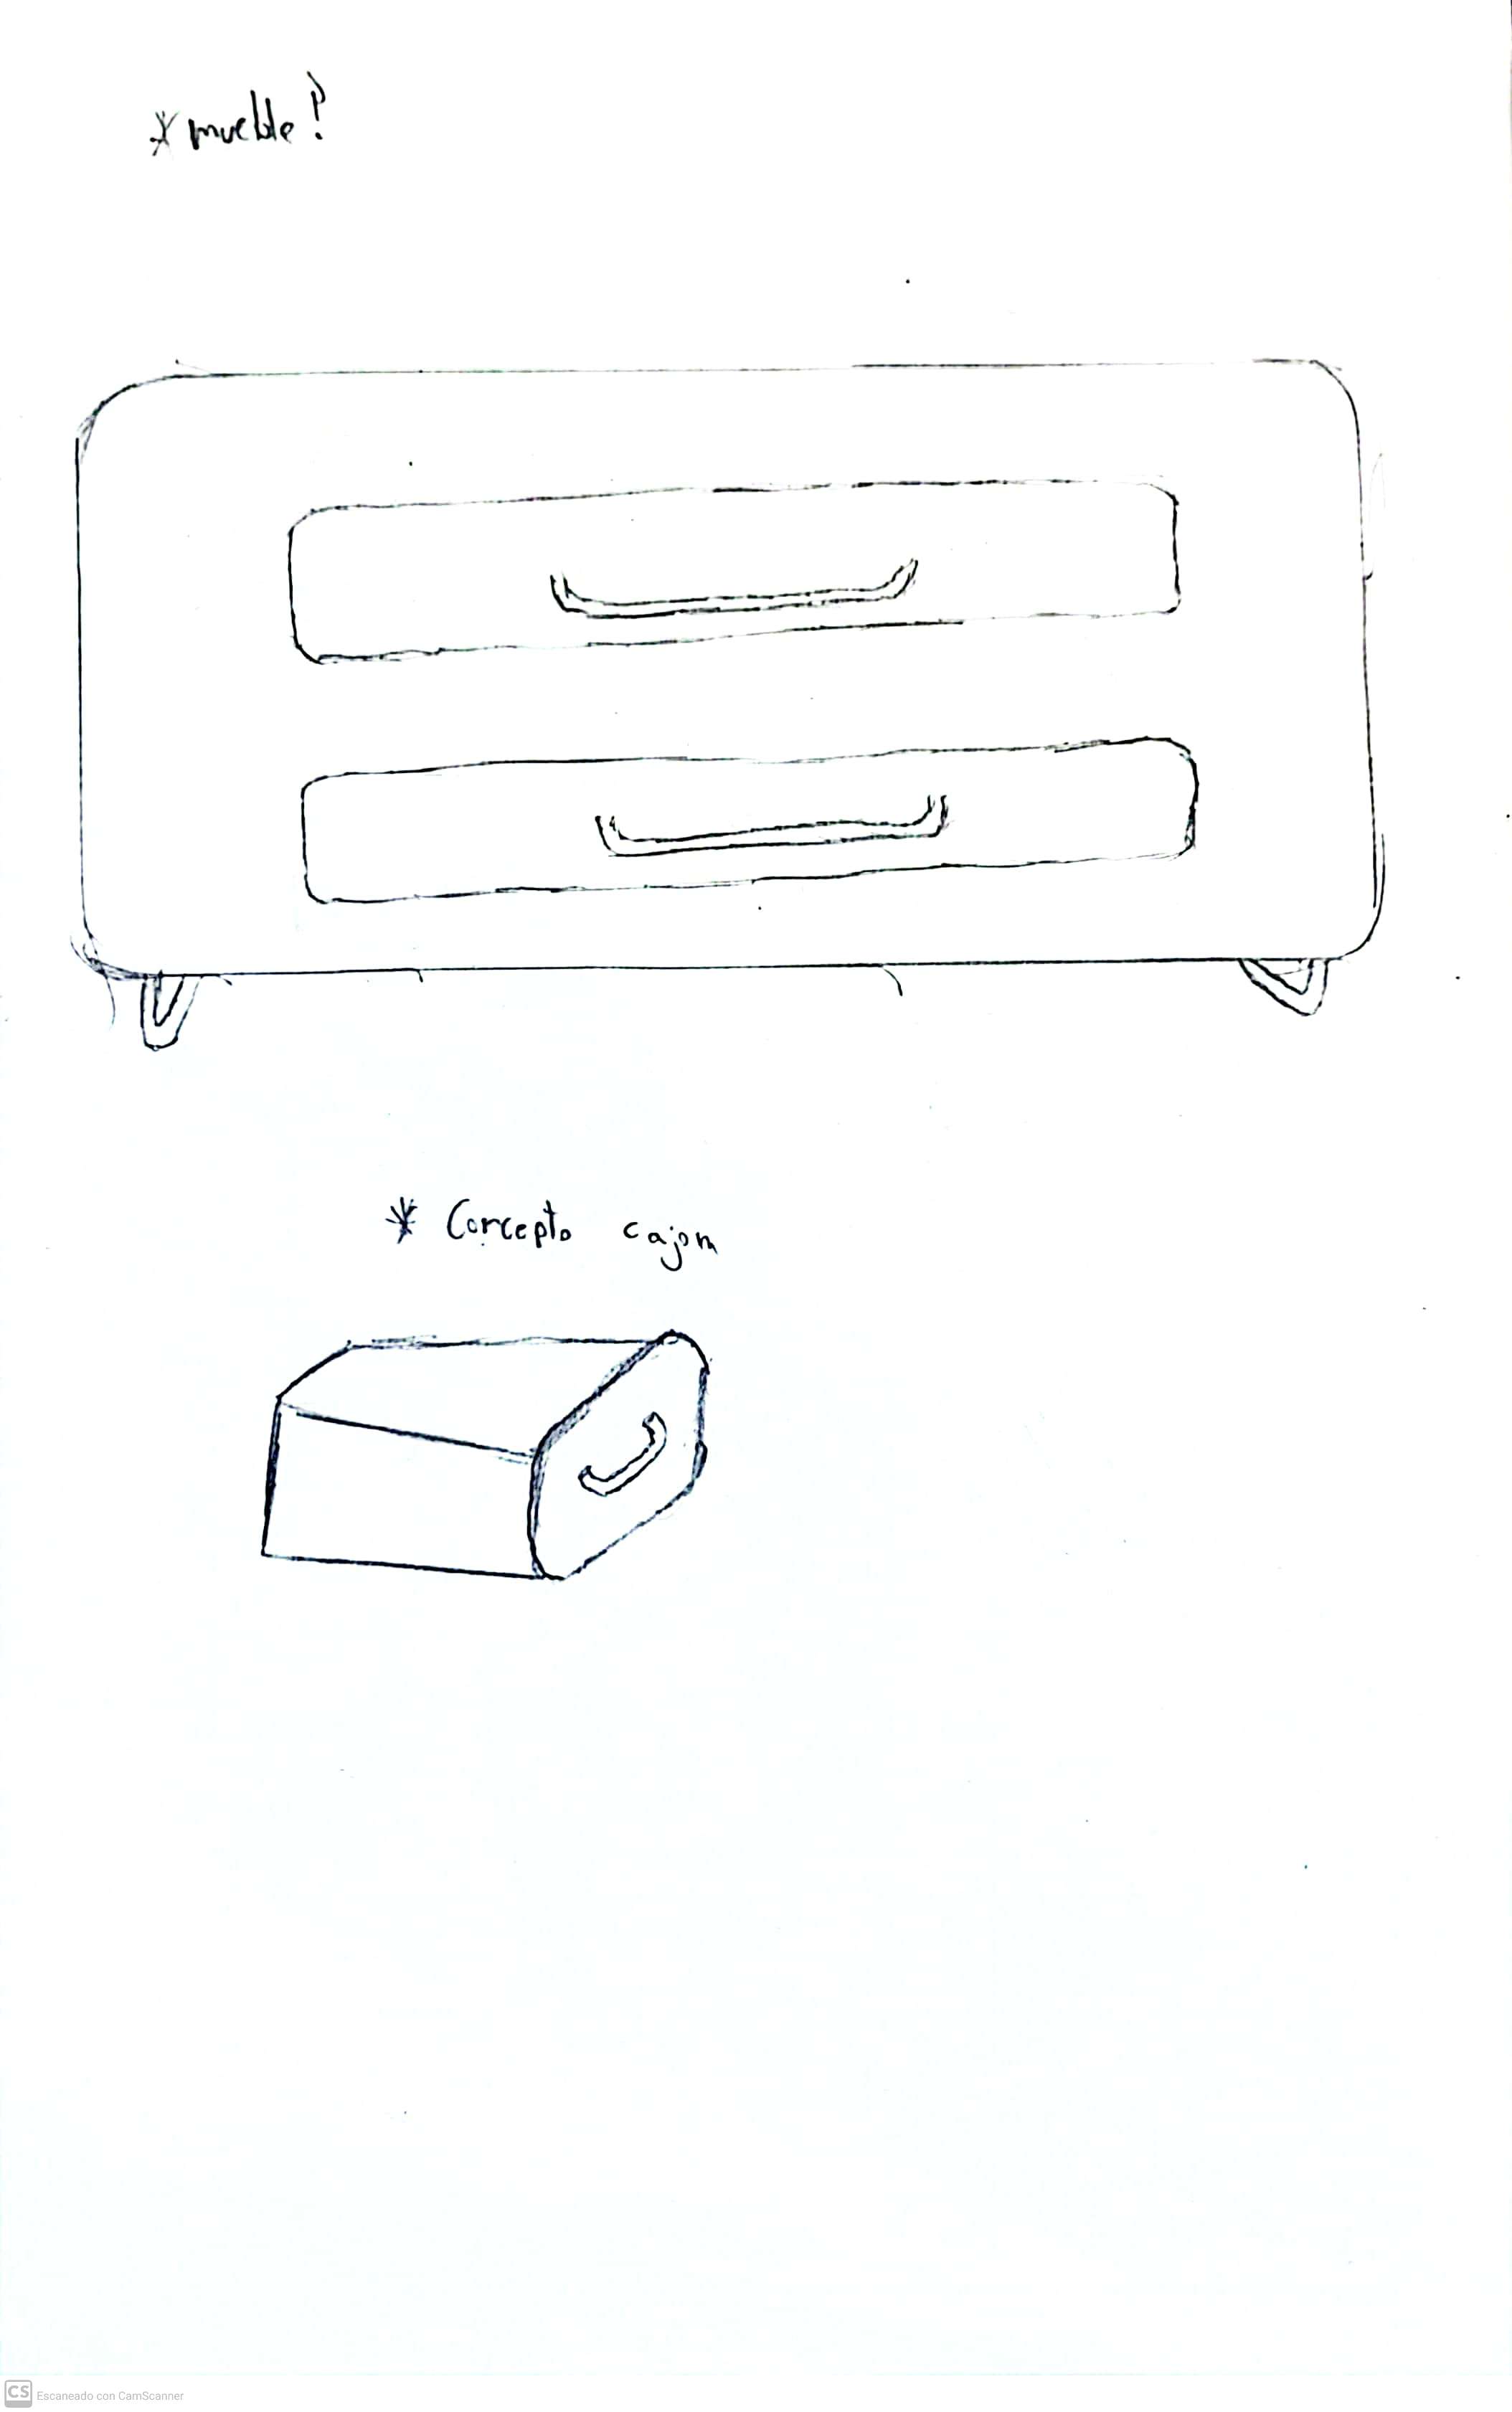 * mueble?
* Concepto cajon
CS Escaneado con CamScanner